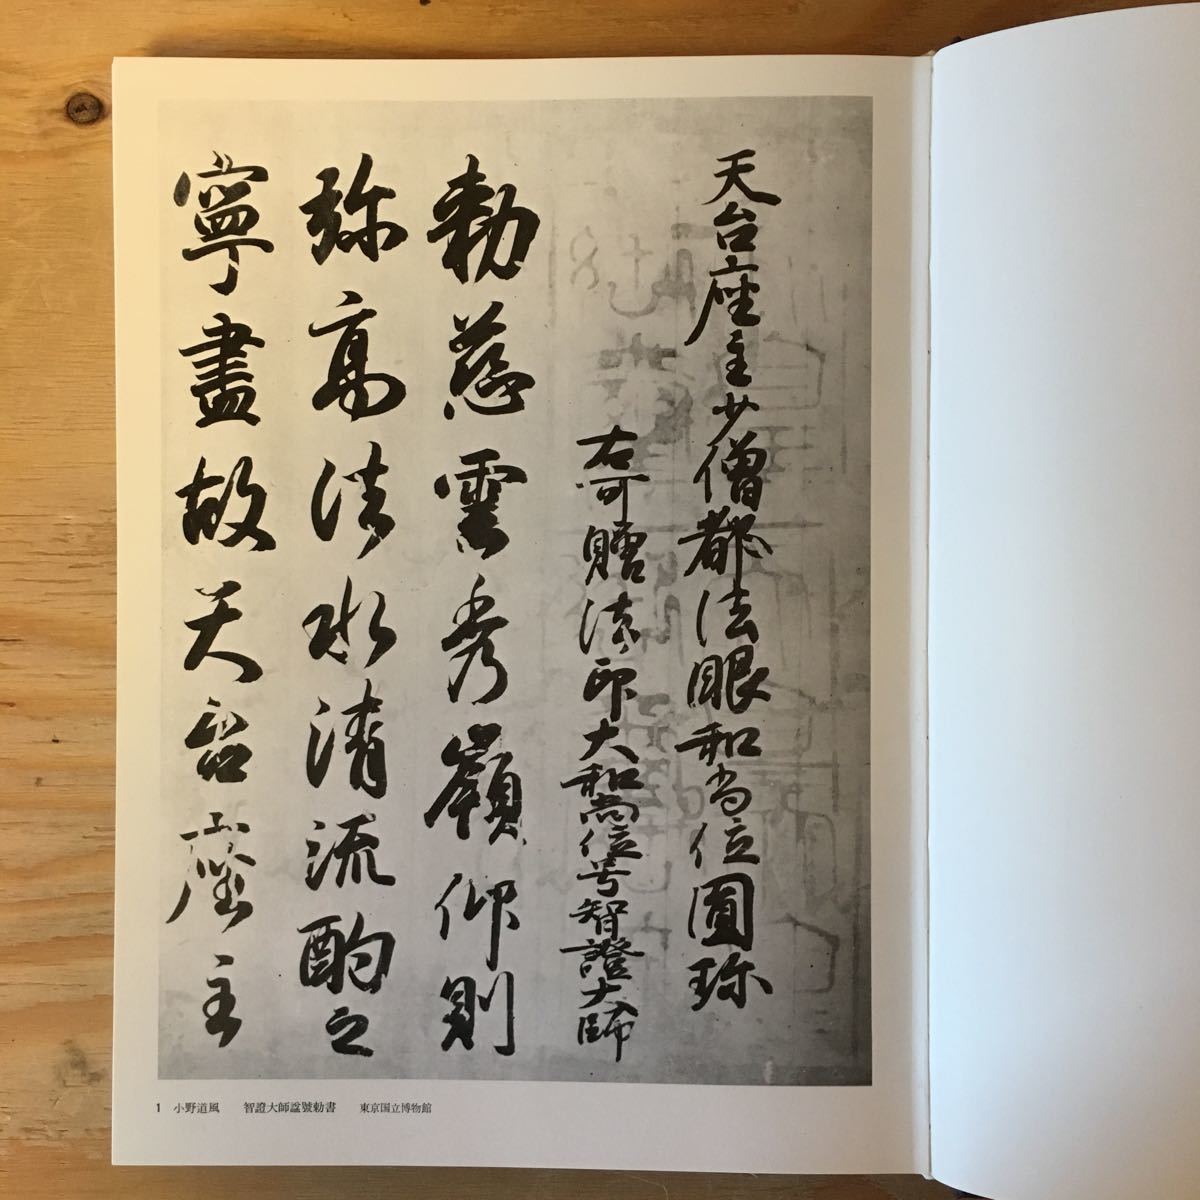 天台座主少僧都法眼和尚位圓珍
右可贈法印大和尚位号智證大師
勅慈雲秀嶺仰則
弥高法水清流酌之
寧盡故天台座主
1 小野道風 智證大師諡號勅書 東京国立博物館